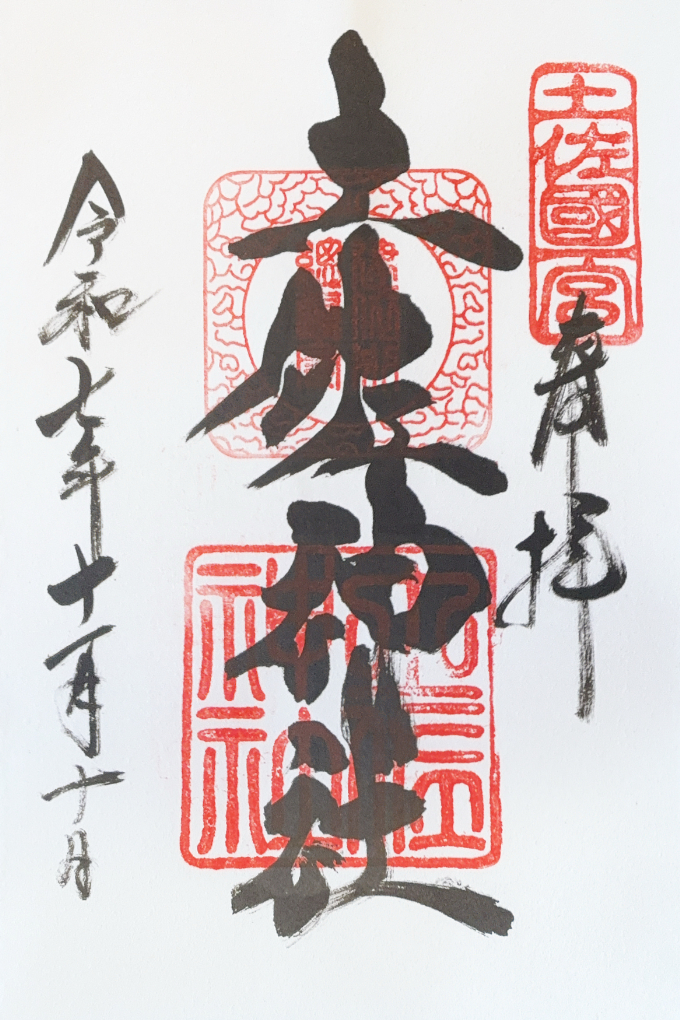 土佐國一宮
奉拝
土佐神社
令和七年十一月十日